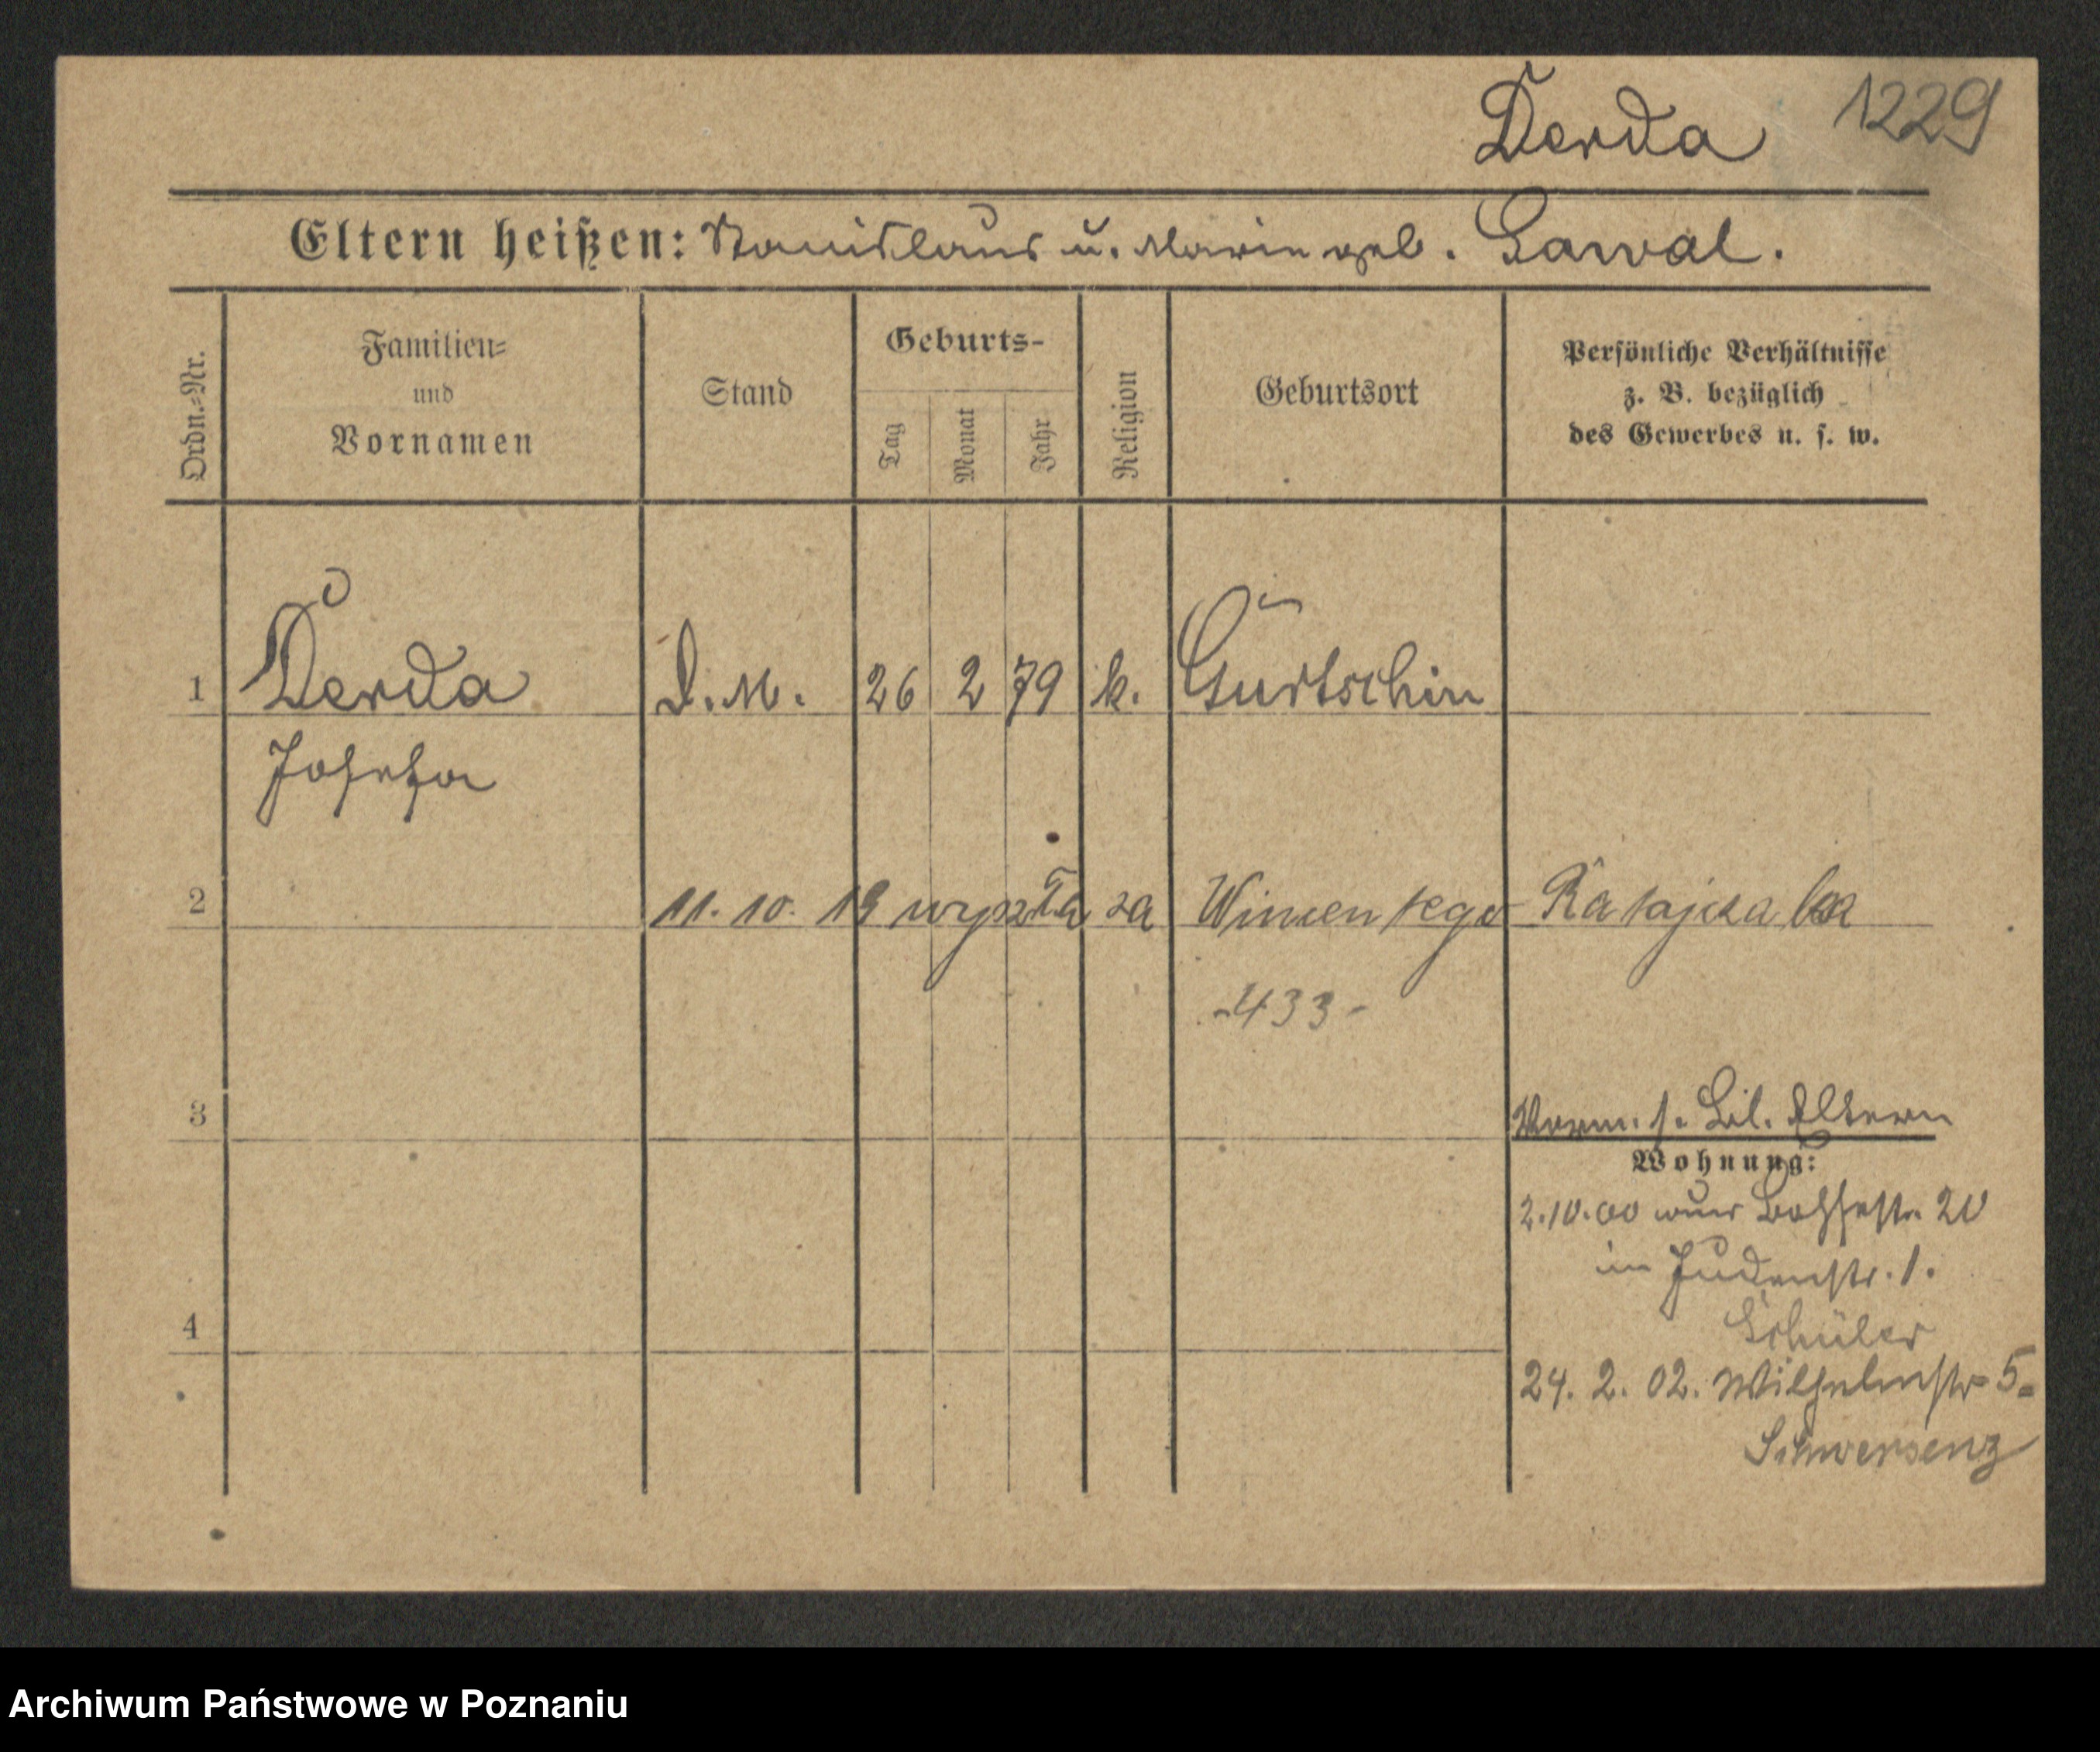 Derda 1229
Eltern heißen: Stanislaus u. Marie geb. Gawal.
Ordn.-Nr.
Familien-
und
Vornamen
Stand
Geburts-
Tag
Monat
Jahr
Religion
Geburtsort
Persönliche Verhältnisse
z. B. bezüglich
des Gewerbes u. s. w.
1 Derda D.M. 26 2 79 k. Gurtschin
Josefa
2 11. 10. 19 wyszła za Wincentego Ratajczaka
-433-
3 Vorm. s. Bl. Eltern
Wohnung:
2.10.00 20
in Judenstr. 1.
Schüler
4
24. 2. 02. Wilhelmstr 5.
Schwersenz
Archiwum Państwowe w Poznaniu